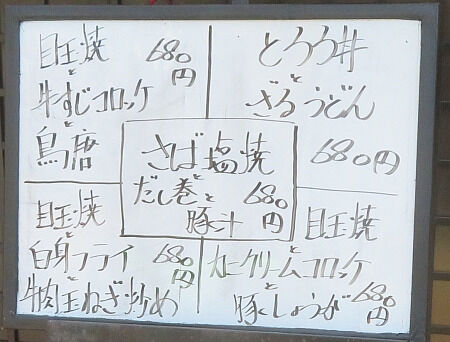 目玉焼 680円
と
牛すじコロッケ
と
鳥唐
とろろ丼
と
ざるうどん
680円
さば塩焼
と
だし巻と 680円
豚汁
目玉焼
と
白身フライ 680円
と
牛肉玉ねぎ炒め
目玉焼
と
カニクリームコロッケ
と
豚しょうが 680円